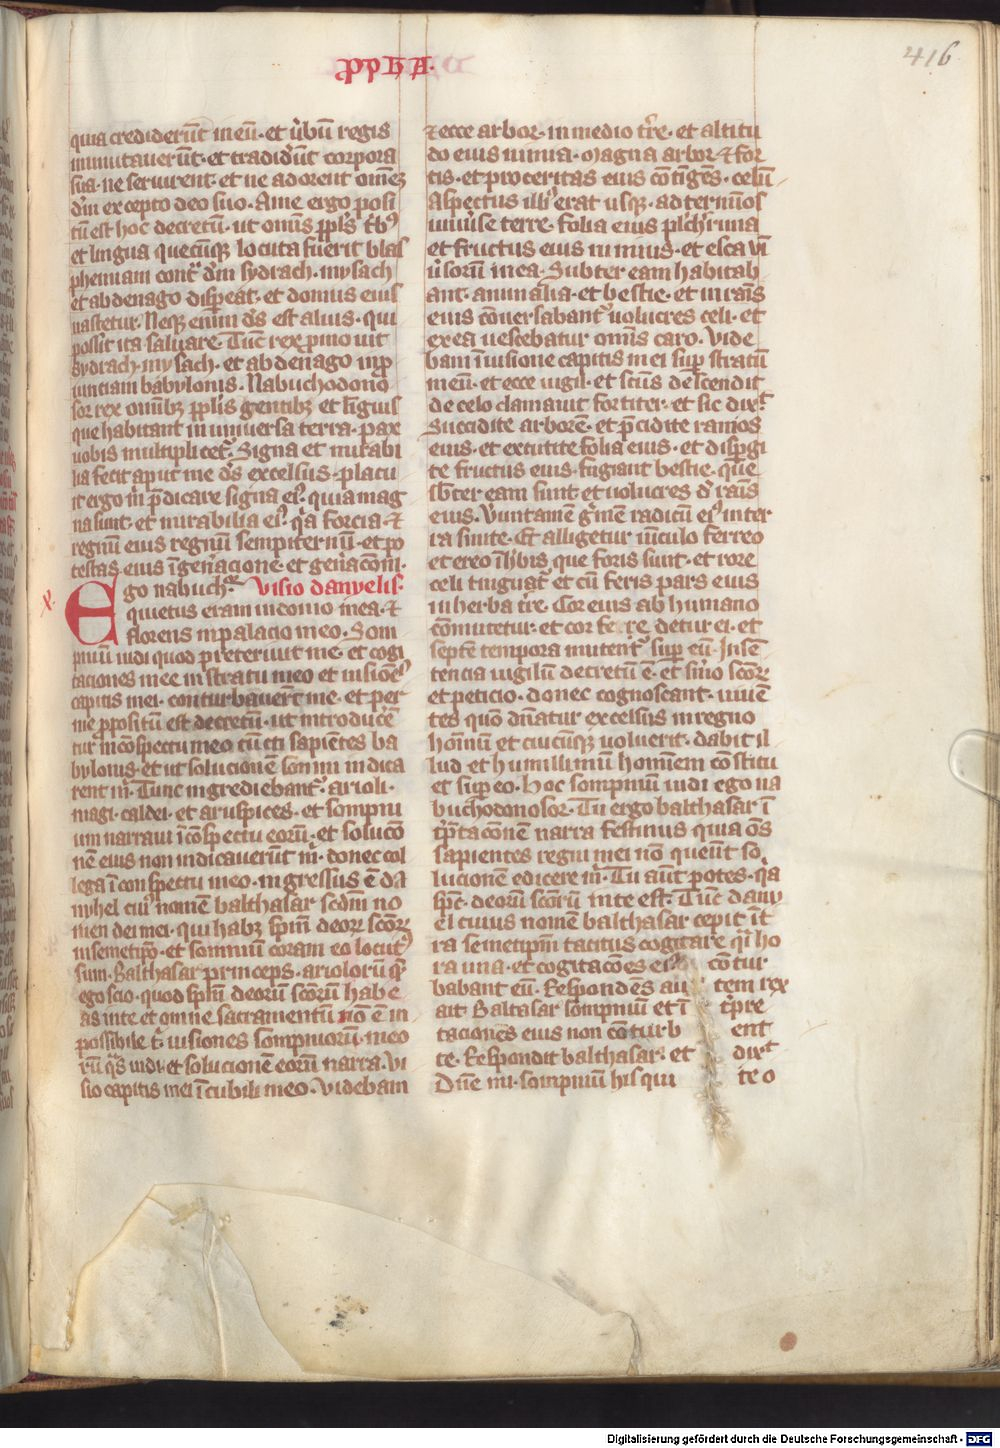 ppHA.
416
quia credider̄t in eū. et ûbū regis
inmutauer̄t. et tradid̾unt corpora
sua. ne seruirent. et ne adorent om̄ez
dm̄ excepto deo suo. A me ergo posi
tū est hoc decretū. ut omnis ppl̄s t̄b9
et lingua quecūq̨ locuta fuerit blas
phemiam contͣ dm̄ sydrach. mysach
et abdenago disp̱eat. et domus eius
uastetur. Neq̨ enim ds̄ est alius. qui
possit ita saluare. Tūc rex p̱mouit
sydrach. mysach. et abdenago inp̱
uinciam babylonis. Nabuchodono
sor rex omnibz ppl̄is gentibz et liguis
que habitant in uniuersa terra. pax
uobis multiplicetͬ. Signa et mirabi
lia fecit aput me ds̄ excelsus. placu
it ergo m̄ p̄dicare signa ei9. quia mag
na sunt. et mirabilia ei9. qͣa forcia ⁊
regnū eius regnū sempiternū. et po
testas eius ī gen̾acione. et gen̾acōm̄.
Ego nabuch9. Visio danyelis.
X.
quietus eram in domo mea. ⁊
florens in palacio meo. Som
pniū uidi quod preteriuit me. et cogi
taciones mee in stratu meo et uisiōes
capitis mei. conturbauer̄t me. et per
me p̱positū est decretū. ut introducer̄
tur in cōspectu meo cūcti sapiētes ba
bylonis. et ut solucionē somni indica
rent m̄. Tunc ingrediebantͬ. arioli.
magi. caldei. et aruspices. et sompni
um narraui ī cōspectu eorū. et solucō
nē eius non indicauer̄t m̄. donec col
lega ī conspectu meo. ingressus ē da
nyhel cui9 nomē balthasar scdm̄ no
men dei mei. qui habz sp̄m deorz scōrz
in semetip̱o. et somnium coram eo locut9
sum. Balthasar princeps. ariolorū qm̄
ego scio. quod sp̄m deorū scōrū habe
as in te et omne sacramentū no ē in
possibile t̾. uisiones sompniorū. meo
rū qͣs uidi. et solucionē eorū narra. Vi
sio capitis mei ī cubili meo. Videbam
⁊ ecce arbor. in medio tr̄e. et altitu
do eius nimia. Magna arbor ⁊ for
tis. et proceritas eius cōtigēs. celū
aspectus illi9 erat usq̨. ad terminos
uniu̾se terre. folia eius pulch̾rima
et fructus eius nimius. et esca uni
u̾sorū in ea. Subter eam habitab
ant. animalia. et bestie. et in ramis
eius cōuersabantͬ uolucres celi. et
ex ea uescebatur omnis caro. Vide
bam ī uisione capitis mei sup̱ stratū
meū. et ecce uigil. et scūs descendit
de celo clamauit fortiter. et sic dixͭ.
Succidite arborē. et p̄cidite ramos
eius. et excutite folia eius. et disp̱gi
te fructus eius. fugiant bestie. que
sb̄ter eam sunt et uolucres d̾ ramis
eius. V̾untamē g̾mē radicū ei9 in ter
ra sinite. Et alligetur uīculo ferreo
et ereo ī h̾bis que foris sunt. et rore
celi tinguatͬ et cū feris pars eius
in herba tr̄e. Cor eius ab humano
cōmutetur. et cor fe re detur ei. et
septē tempora mutentͬ sup̱ eū. In sē
tencia uigilū decretū ē. et s̾mo scōrz
et peticio. donec cognoscant. uiuē
tes quō dn̄atur excelsus in regno
hoīnū et cuicūq̨ uoluerit. dabit il
lud et humillimū hominem cōstitu
et sup̱ eo. Hoc sompniū uidi ego na
buchodonosor. Tu ergo balthasar ī
t̾p̱tacōnē narra festinus quia om̄s
sapientes regni mei nō queūt so
lucionē edicere m̄. Tu aūt potes. qͣa
sp̄c. deorū scōrū in te est. Tūc dany
el cuius nomē balthasar cepit īt
ra semetipm̄ tacitus cogitare qͣi ho
ra una. et cogitacōes ei9 cōtur
babant eū. Respondēs au tem rex
ait Baltasar sompniū et ī t̾pre
taciones eius non cōturb ent
te. Respondit balthasar. et dixͭ
Dn̄e mi. sompniū his qui te o
Digitalisierung gefördert durch die Deutsche Forschungsgemeinschaft - DFG